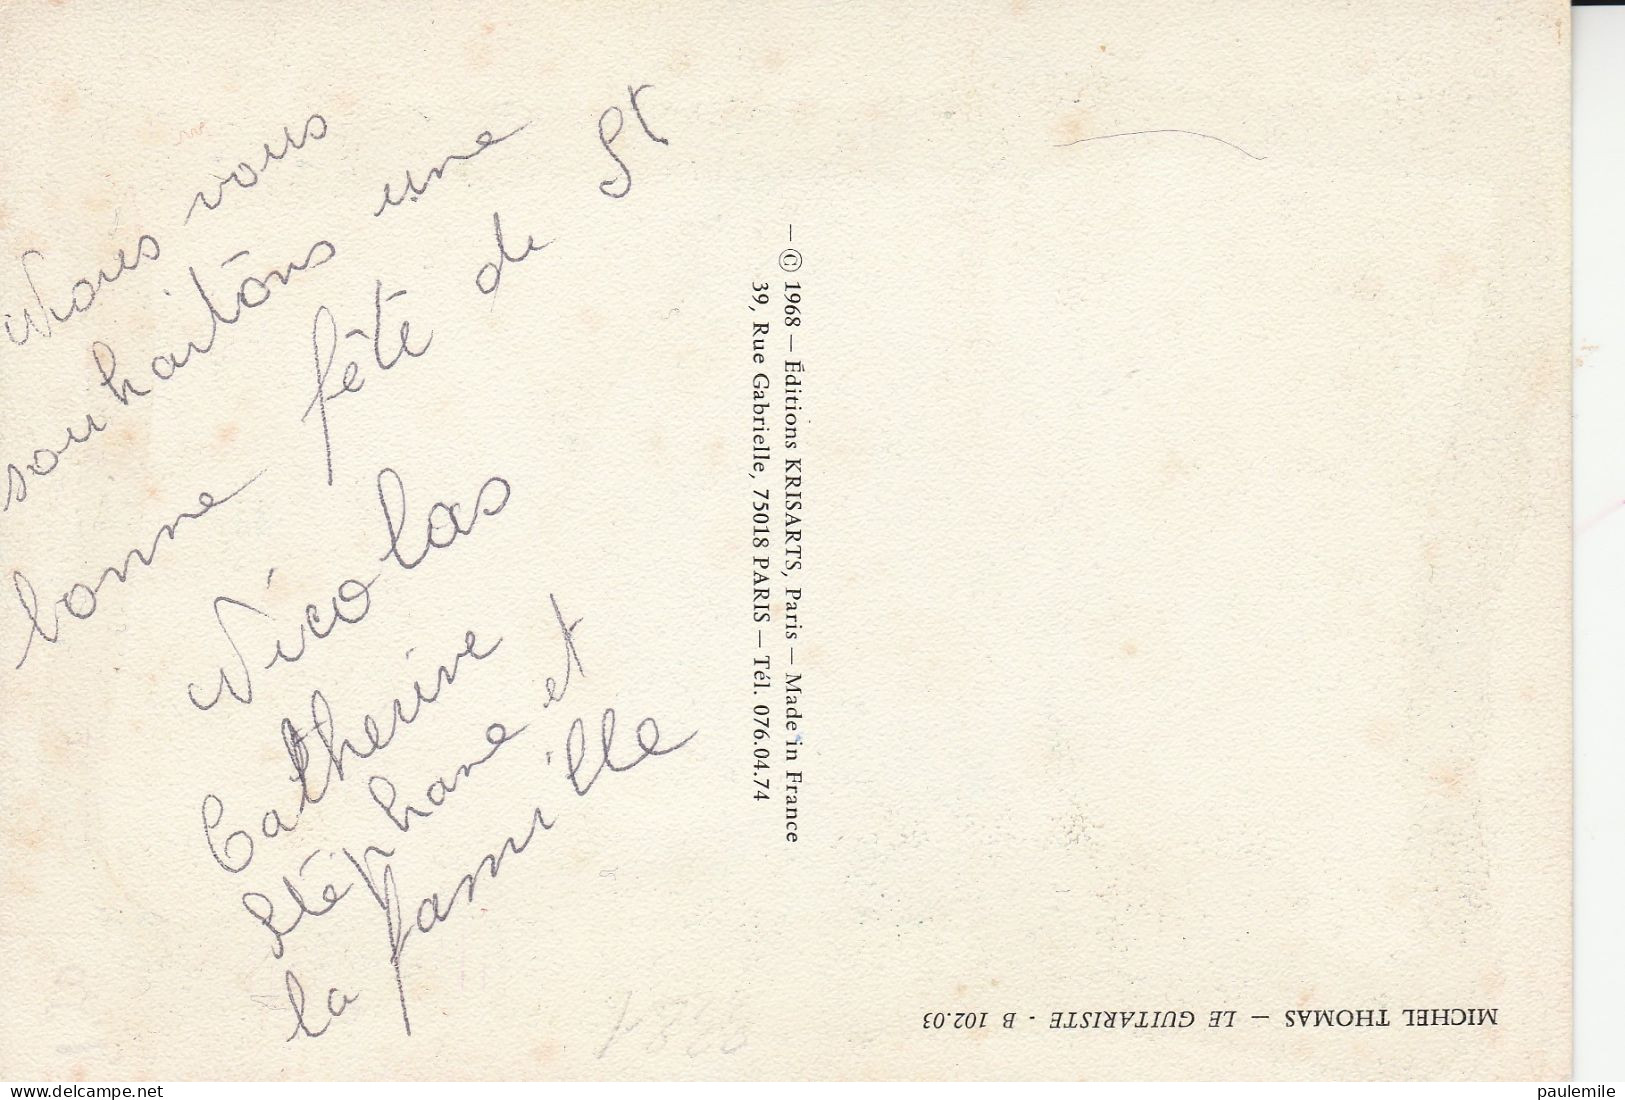 Nous vous
souhaitons une
bonne fête de St
Nicolas
Catherine
Stéphane et
la famille
— © 1968 — Éditions KRISARTS, Paris — Made in France
39, Rue Gabrielle, 75018 PARIS — Tél. 076.04.74
MICHEL THOMAS — LE GUITARISTE - B 102.03
delcampe.net
paulemile